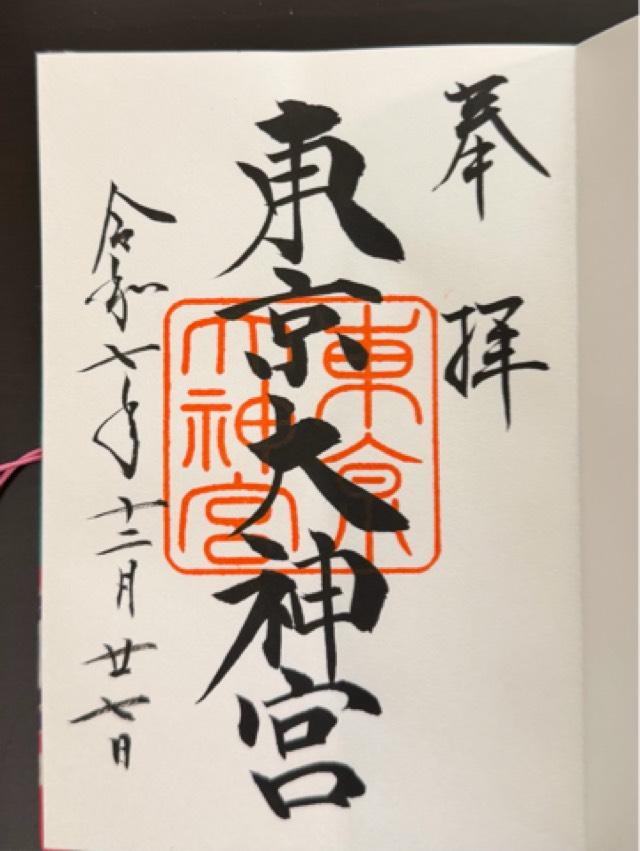 奉拝
東京大神宮
東京大神宮
令和七年十二月廿七日